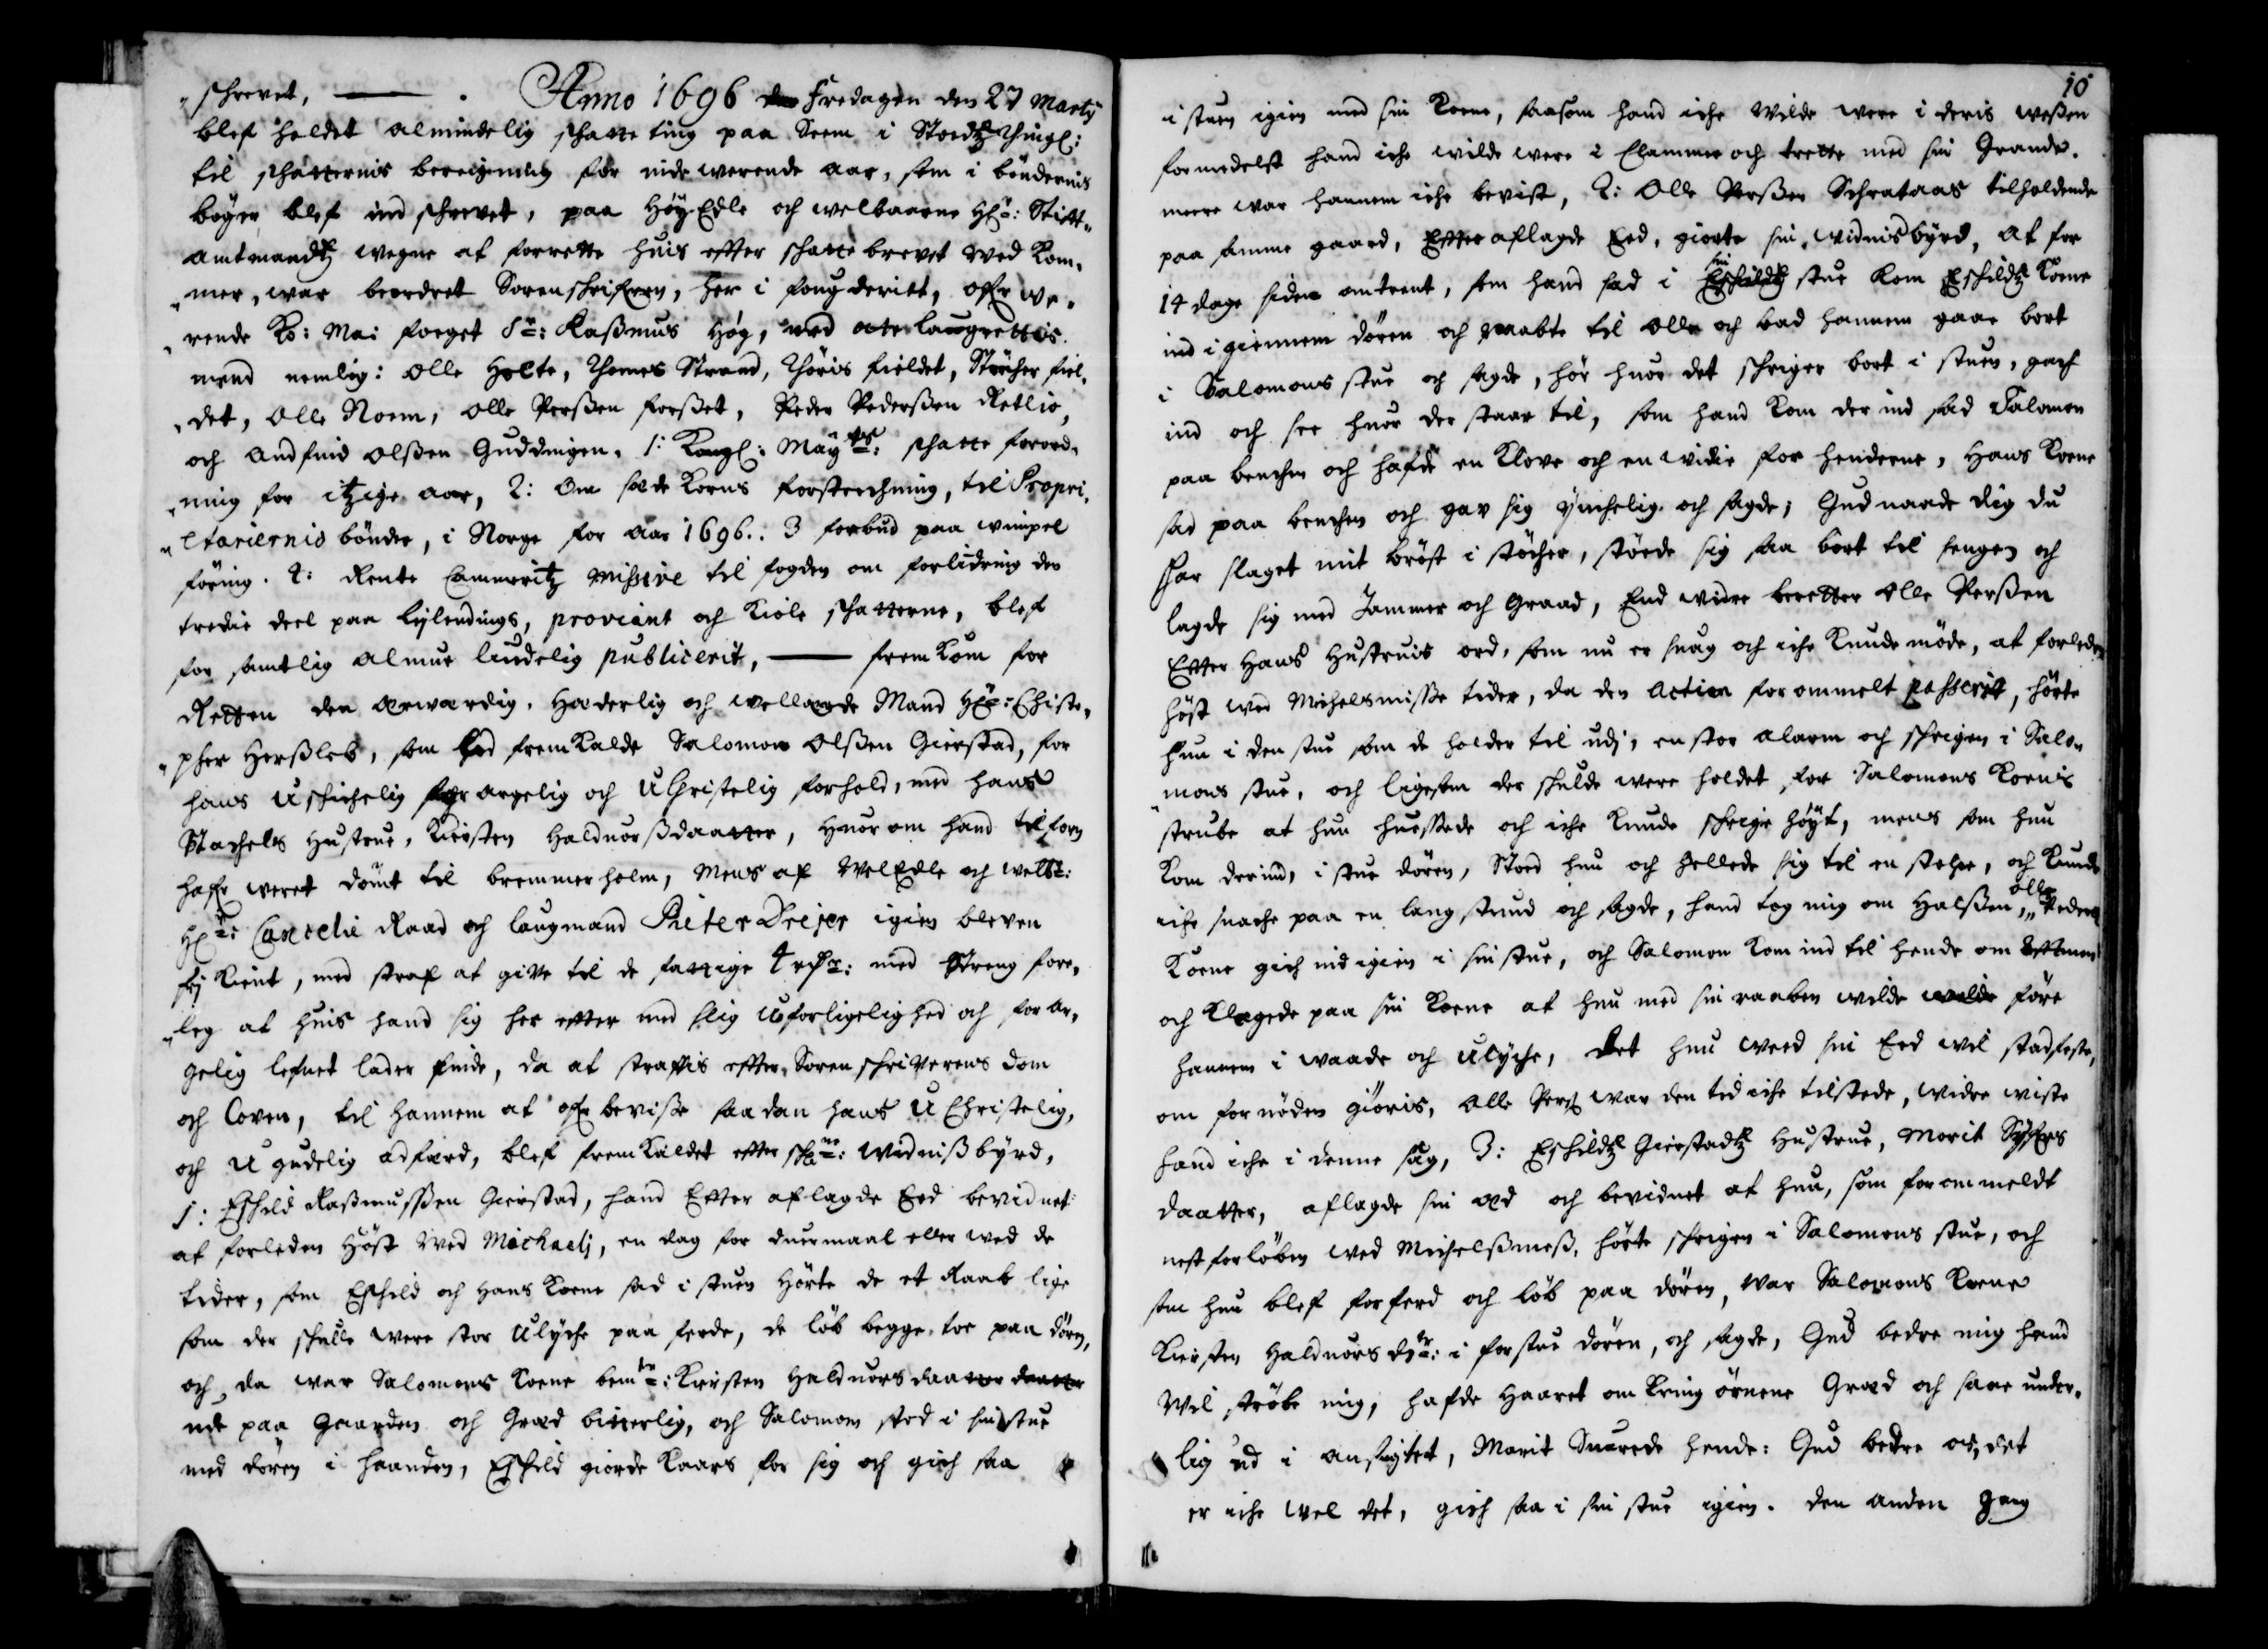 schrevet, ——— . Anno 1696 den Fredagen den 27 Martÿ
blef holdet almindelig schatte ting paa Seem i Stoedtz Thingl:
til schatternis beregning for nide werende aar, som i böndernis
bøger blef ind schrevet, paa Høy Edle och welbaarne Hr: Stift-
amtmandtz wegne at forrette huis effter schatte brevet wed kom-
mer, war beordret Sorenschrifveren, her i fougderiet, ofver we-
rende Ko: Ma: foeget Sr: Rasmus Høg, med otte laugrettis
mend nemlig: Olle Holte, Thomes Strand, Thöris fieldet, Störcher fiel-
det, Olle Noem, Olle Perßen forßet, Peder Pederßen Retlie,
och Andfind Olßen Guddingen. 1: Kongl: Mayts: schatte forord-
ning for itzige aar, 2: Om sæde korns forstrechning, til Propri-
etariernis bönder, i Norge for Aar 1696.. 3 forbud paa wimpel
föring. 4: Rente Cammeritz missive til fogden om forlidring den
tredie deel paa leylendings, proviant och Kiole schatterne, blef
for samtlig almue liudelig publicerit, ——— frem kom for
Retten den ærwærdig, Hæderlig och wellærde Mand Hr: Christo-
pher Herßleb, som lod frem kalde Salomon Olßen Gierstad, for
hans uschichelig forargelig och UChristelig forhold, med hans
Stachels Hustrue, Kirsten Halduorßdaatter, Huor om hand tilforn
hafr weret dömt til bremmerholm, mens af WelEdle och welbr:
Hr: Cancelie Raad och laugmand Pieter Dreyer igien bleven
frj Kient, med straf at give til de fattige 4 rdr: med Streng fore-
leg at huis hand sig her effter med slig uforligelighed och forar-
gelig lefnet lader finde, da at straffis effter Sorenschriverens dom
och loven, til hannem at ofrbevisse saadan hans UChristelig,
och Ugudelig adfærd, blef fremkaldet effter schne: widnißbyrd,
1: Eschild Raßmusßen Gierstad, hand Effter aflagde Eed bevidnet
at forleden Höst wed Michaelj, en dag for duermaal eller wed de
tider, som Eschild och Hans Koene sad i stuen hörte de et Raab lige
som der schulle were stor Ulyche paa ferde, de löb begge toe paa dören,
och da war Salomons Koene bemte: Kirsten Halduors daatter
ude paa Gaarden och Græd bitterlig, och Salomon stod i sin stue
med dören i haanden, Eschild giorde Kaars for sig och gich saa
10
i stuen igien med sin Koene, saasom hand iche wilde were i deris weßen
formedelst hand iche wilde were i Clammer och trette med sin Grande.
meere war hannem iche bevist, 2: Olle Perßen Schrataas tilholdende
paa samme gaard, Effter aflagde Eed, giorte sin widnisbyrd, at for
14 dage siden omtrent, som hand sad i sin stue kom Eschildtz Köene
ind igiennem dören och raabte til Olle och bad hannem gaae bort
i Salomons stue och sagde, hör huor det schriger bort i stuen, gach
ind och see huor der staar til, som hand kom der ind sad Salomon
paa benchen och hafde en Klove och en widie for henderne, Hans Koene
sad paa benchen och gav sig ynchelig och sagde; Gud naade dig du
har slaget mit bröst i stöcher, stöede sig saa bort til sengen och
lagde sig med Jammer och Graad, End widre beretter Olle Perßen
Effter Hans Hustruis ord, som nu er suag och iche Kunde möde, at forleden
höst wed Michelsmisse tider, da den Action forommelt passerit, hörte
hun i den stue som de holder til udj, en stor alarm och schrigen i Salo-
mons stue, och ligesom der schulde were holdet for Salomons Koenis
strube at hun huessede och iche Kunde schrige höyt, mens som hun
kom derind, i stue dören, Stoed hun och hellede sig til en stolpe, och Kunde
iche snache paa en lang stund och sagde, hand tog mig om Halßen, Olle Peders
Koene gich ind igien i sin stue, och Salomon kom ind til hende om Efftmen
och Klagede paa sin Koene at hun med sin raaben wilde före
hannem i waade och Ulyche, det hun weed sin Eed wil stadfeste,
om fornöden giöris, Olle Pers war den tid iche tilstede, widre wiste
hand iche i denne sag, 3: Eschildtz Gierstadtz Hustrue, Marit Syfers
daatter, aflagde sin æd och bevidnet at hun, som forommeldt
nest forlöben wed Michelßmeß, hörte schrigen i Salomons stue, och
som hun blef forferd och löb paa dören, war Salomons Koene
Kirsten Halduors dtr: i forstue dören, och sagde, Gud bedre mig hand
Wil ströbe mig, hafde Haaret omkring örnene Græd och saae under-
lig ud i ansigtet, Marit Suarede hende: Gud bedre os, det
er iche wel det, gich saa i sin stue igien. den anden gang